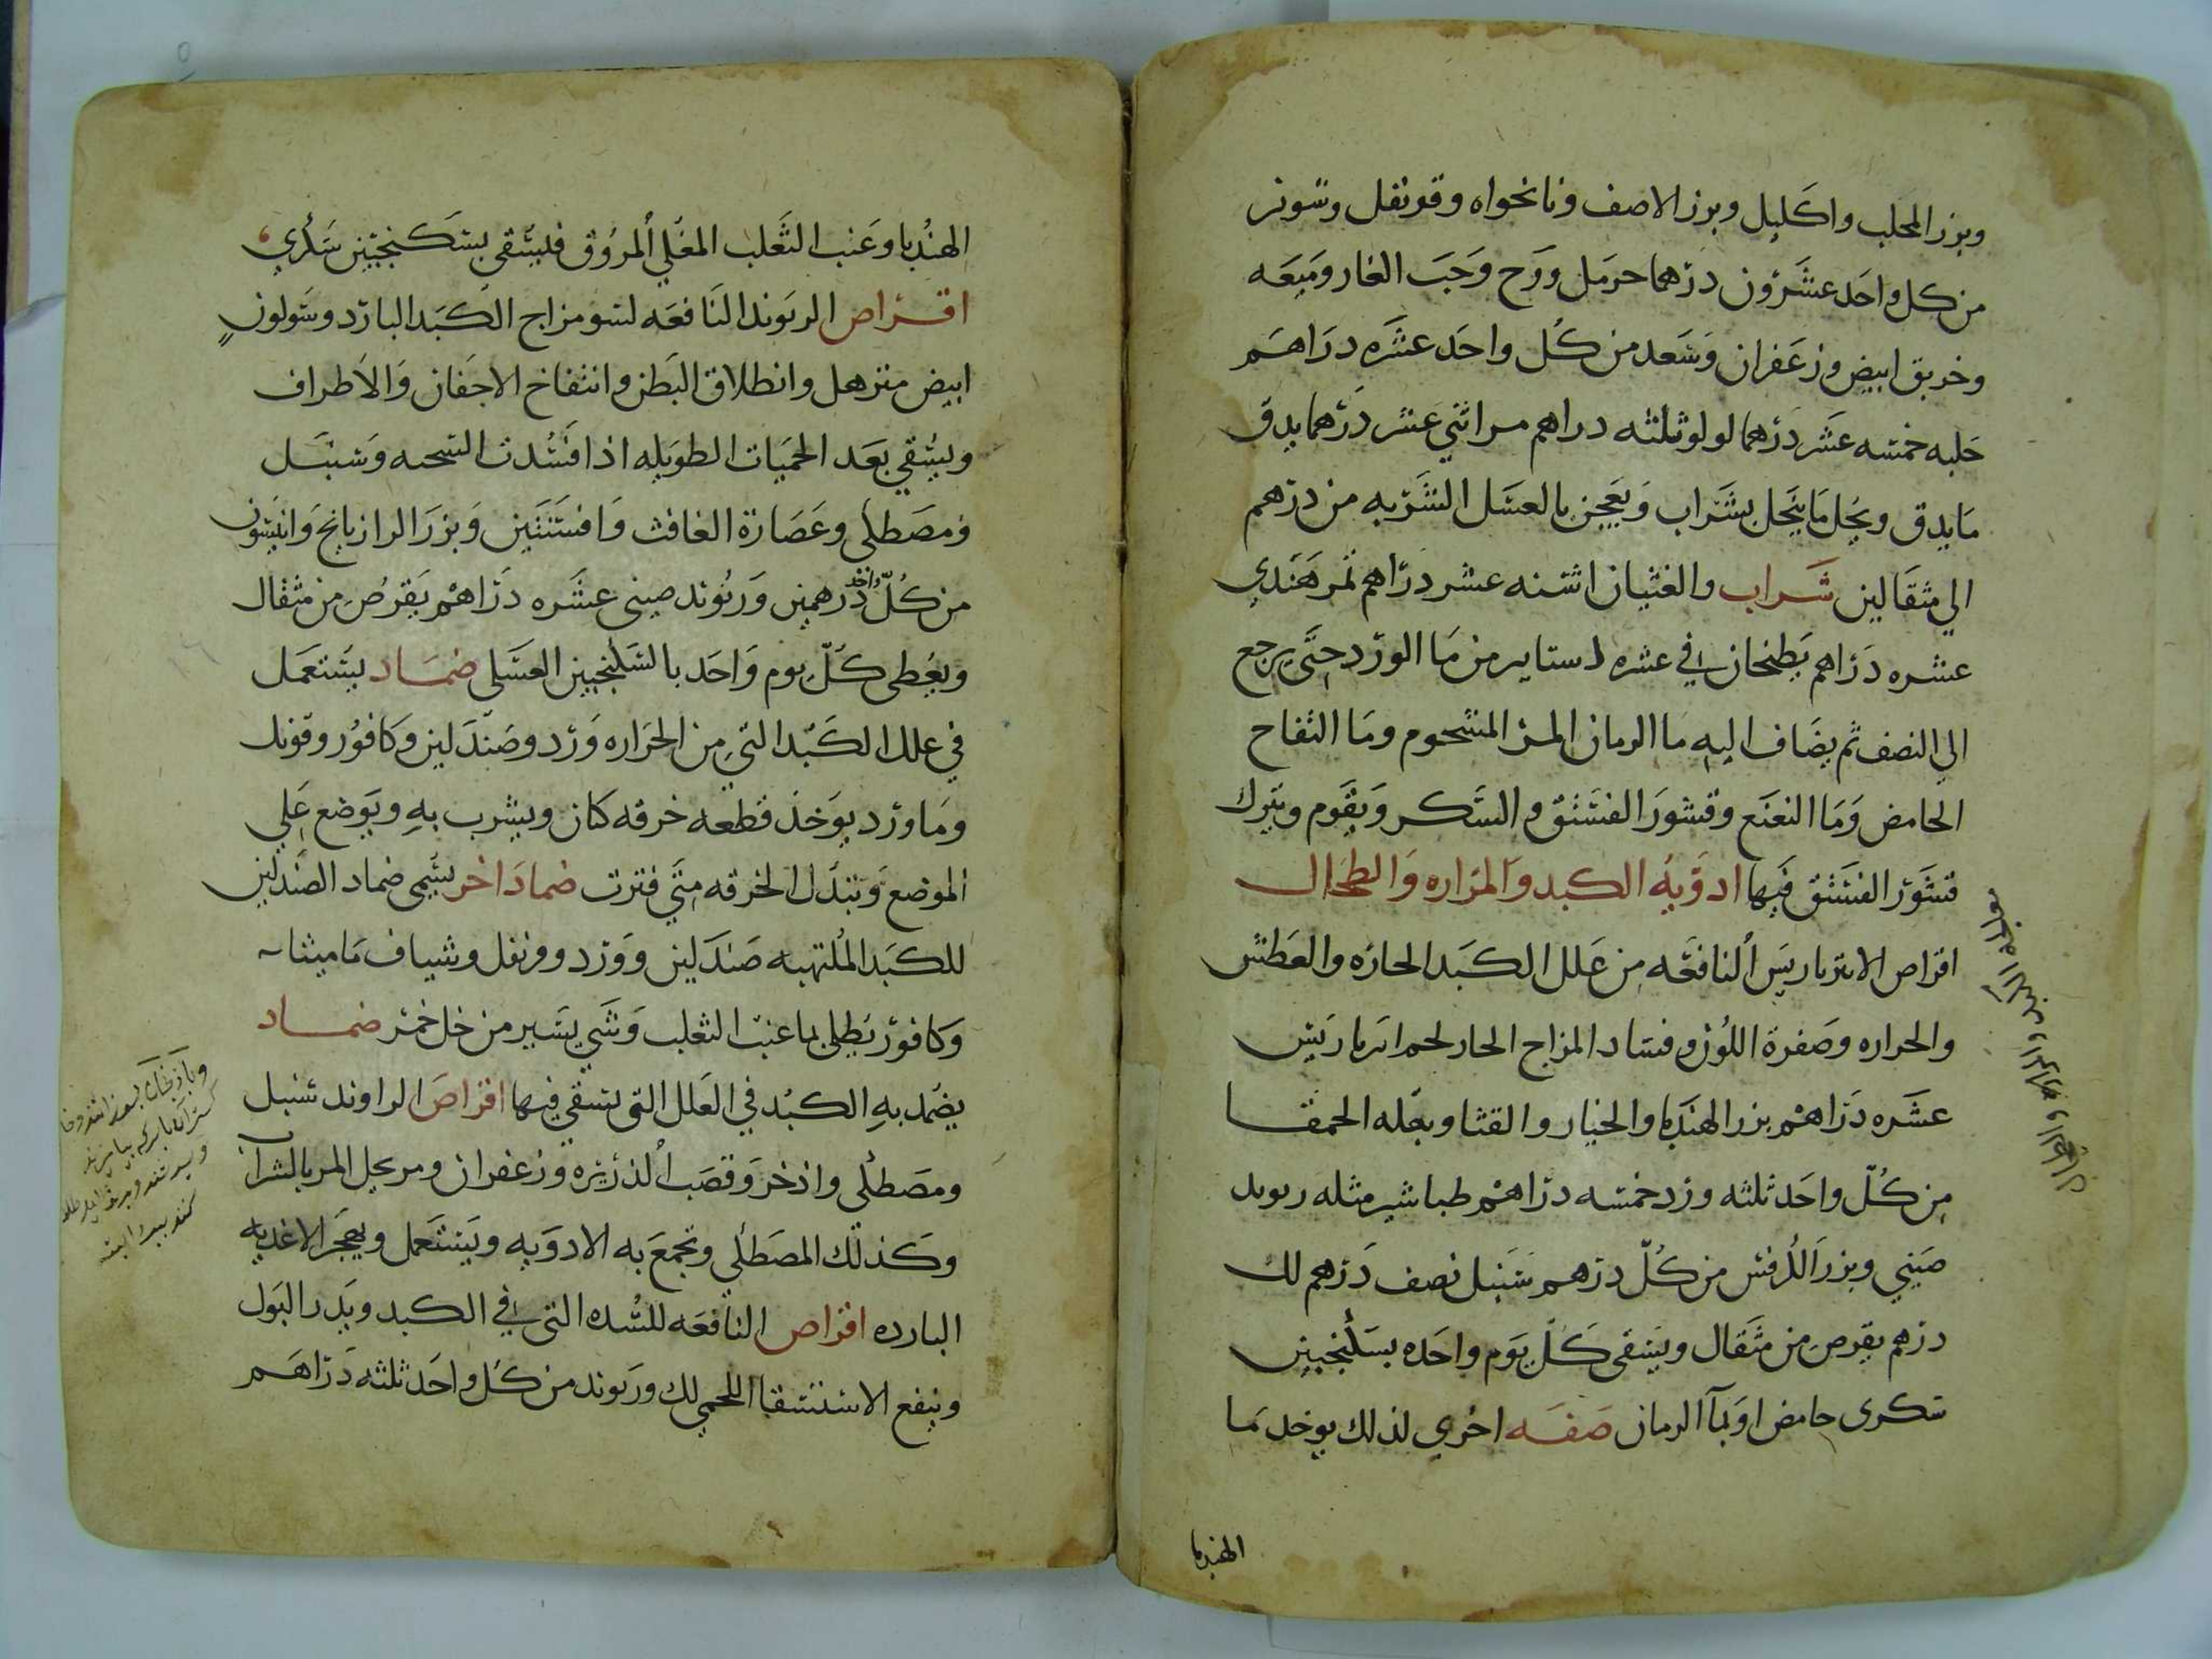 وبزر المحلب واكليل وبزر الاصف ونانخواه وقرنفل وشونر
من كل واحد عشرون درهما حرمل ووج وحب الغار وميعه
وخربق ابيض وزعفران وسعد من كل واحد عشره دراهم
حلبه خمسه عشر درهما لولو ثلثه دراهم مر اثني عشر درهما يدق
ما يدق ويحل ما ينحل بشراب ويعجن بالعسل الشربه من درهم
الي مثقالين شراب والغثيان اشنه عشر دراهم تمر هندي
عشره دراهم يطبخان في عشره استاير من ما الورد حتى يرجع
الي النصف ثم يضاف اليه ما الرمان المز المشحوم وما التفاح
الحامض وما النعنع وقشور الفستق والسكر ويقوم ويترك
قشور الفستق فيها ادويه الكبد والمراره والطحال
اقراص الانبرباريس النافعه من علل الكبد الحاره والعطش
والحراره وصفرة اللون وفساد المزاج الحار لحم انبرباريس
عشره دراهم بزر الهندبا والخيار والقثا وبقله الحمقا
من كل واحد ثلثه ورد خمسه دراهم طباشير مثله ريوند
صيني وبزر الكرفس من كل درهم سنبل نصف درهم لك
درهم يقرص من مثقال ويسقى كل يوم واحده بسكنجبين
سكرى حامض او بمآ الرمان صفه اخري لذلك يوخد ما
الهندبا
الهندبا وعنب الثعلب المغلي المروق فليسقي بسكنجبين سكري
اقراص الريوند النافعه لسو مزاج الكبد البارد وسولون
ابيض مترهل وانطلاق البطن وانتفاخ الاجفان والاطراف
ويسقي بعد الحميات الطويله اذا فسدت السحنه وسنبل
ومصطكى وعصارة الغافث وافسنتين وبزر الرازيانج وانيسون
من كل واحد درهمين وريوند صيني عشره دراهم يقرص من مثقال
ويعطى كل يوم واحد بالسكنجبين العسلى ضماد يستعمل
في علل الكبد التي من الحراره ورد وصندلين وكافور وفوفل
وما ورد يوخذ قطعه خرقه كتان ويشرب به ويوضع علي
الموضع وتبدل الخرقه متي فترت ضماد اخر يسمى ضماد الصندلين
للكبد الملتهبه صندلين وورد وفوفل وشياف ماميثا
وكافور يطلى بما عنب الثعلب وشي يسير من خل خمر ضماد
يضمد به الكبد في العلل التي تسقي فيها اقراص الراوند سنبل
ومصطكى واذخر وقصب الذريره وزعفران ومر يحل المر بالشراب
وكذلك المصطكي وتجمع به الادويه ويستعمل ويهجر الاغذيه
البارده اقراص النافعه للسده التي في الكبد ويدر البول
وينفع الاستسقا اللحمي لك وريوند من كل واحد ثلثه دراهم